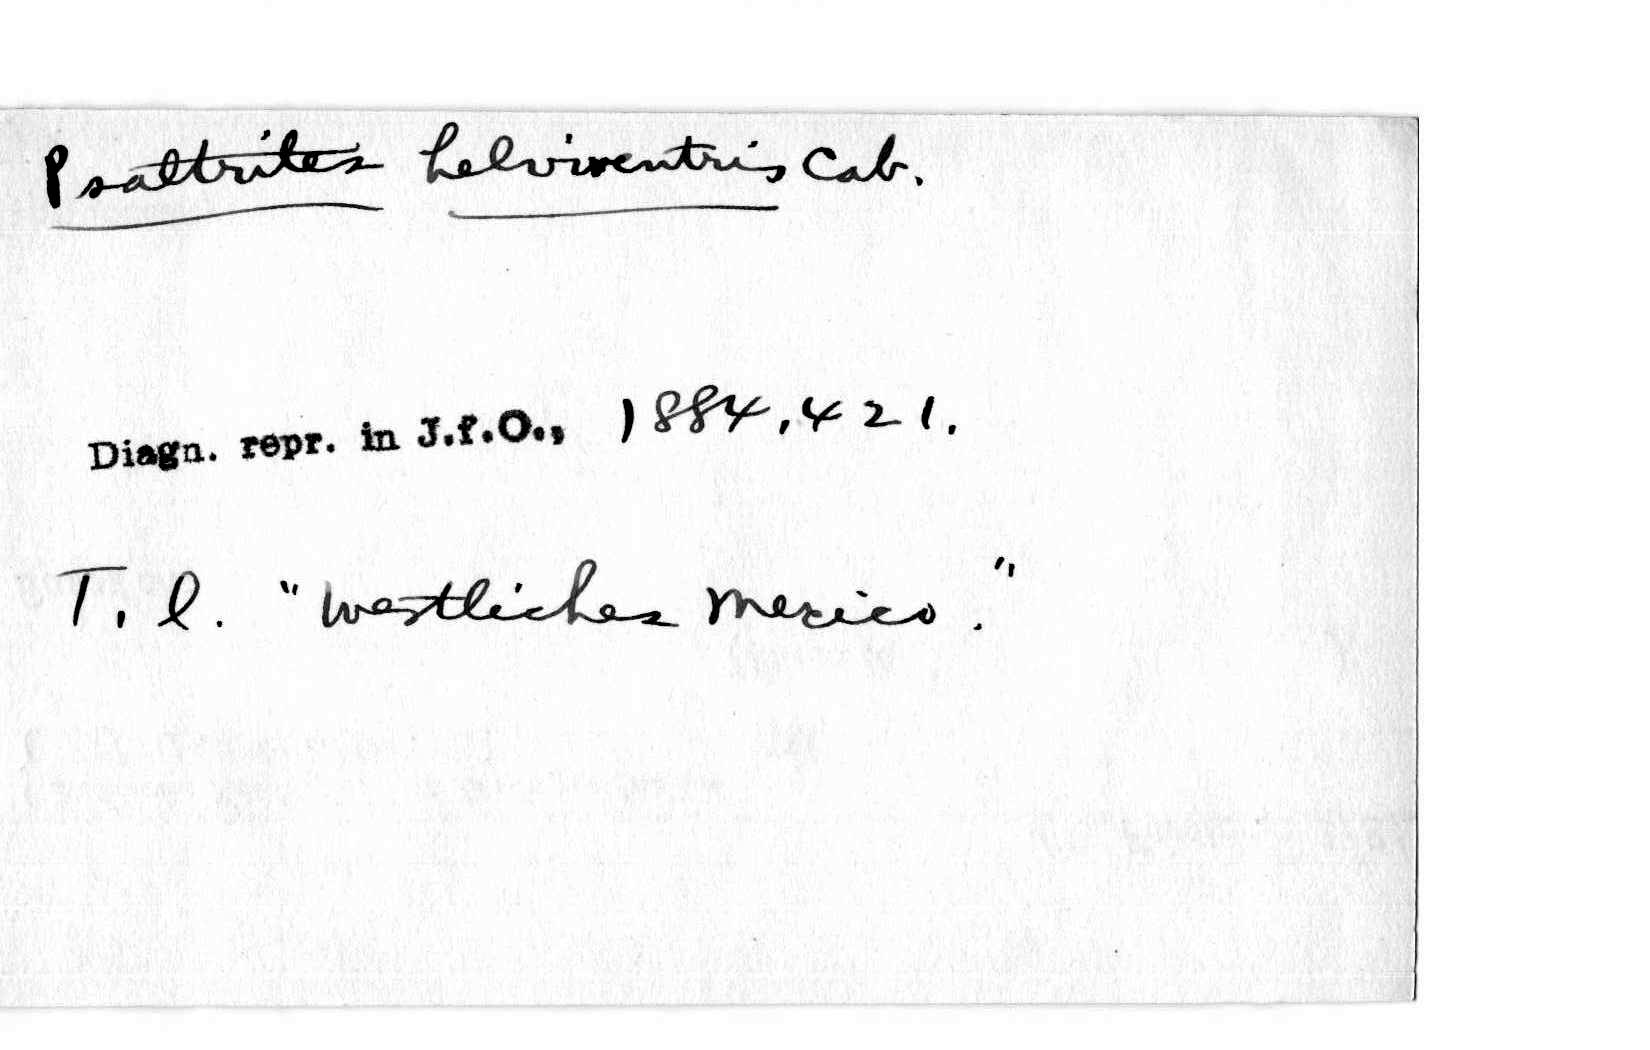 Psaltrites helviventris Cab.
Diagn. repr. in J.f.O., 1884, 421.
T. l. "westliches Mexico."